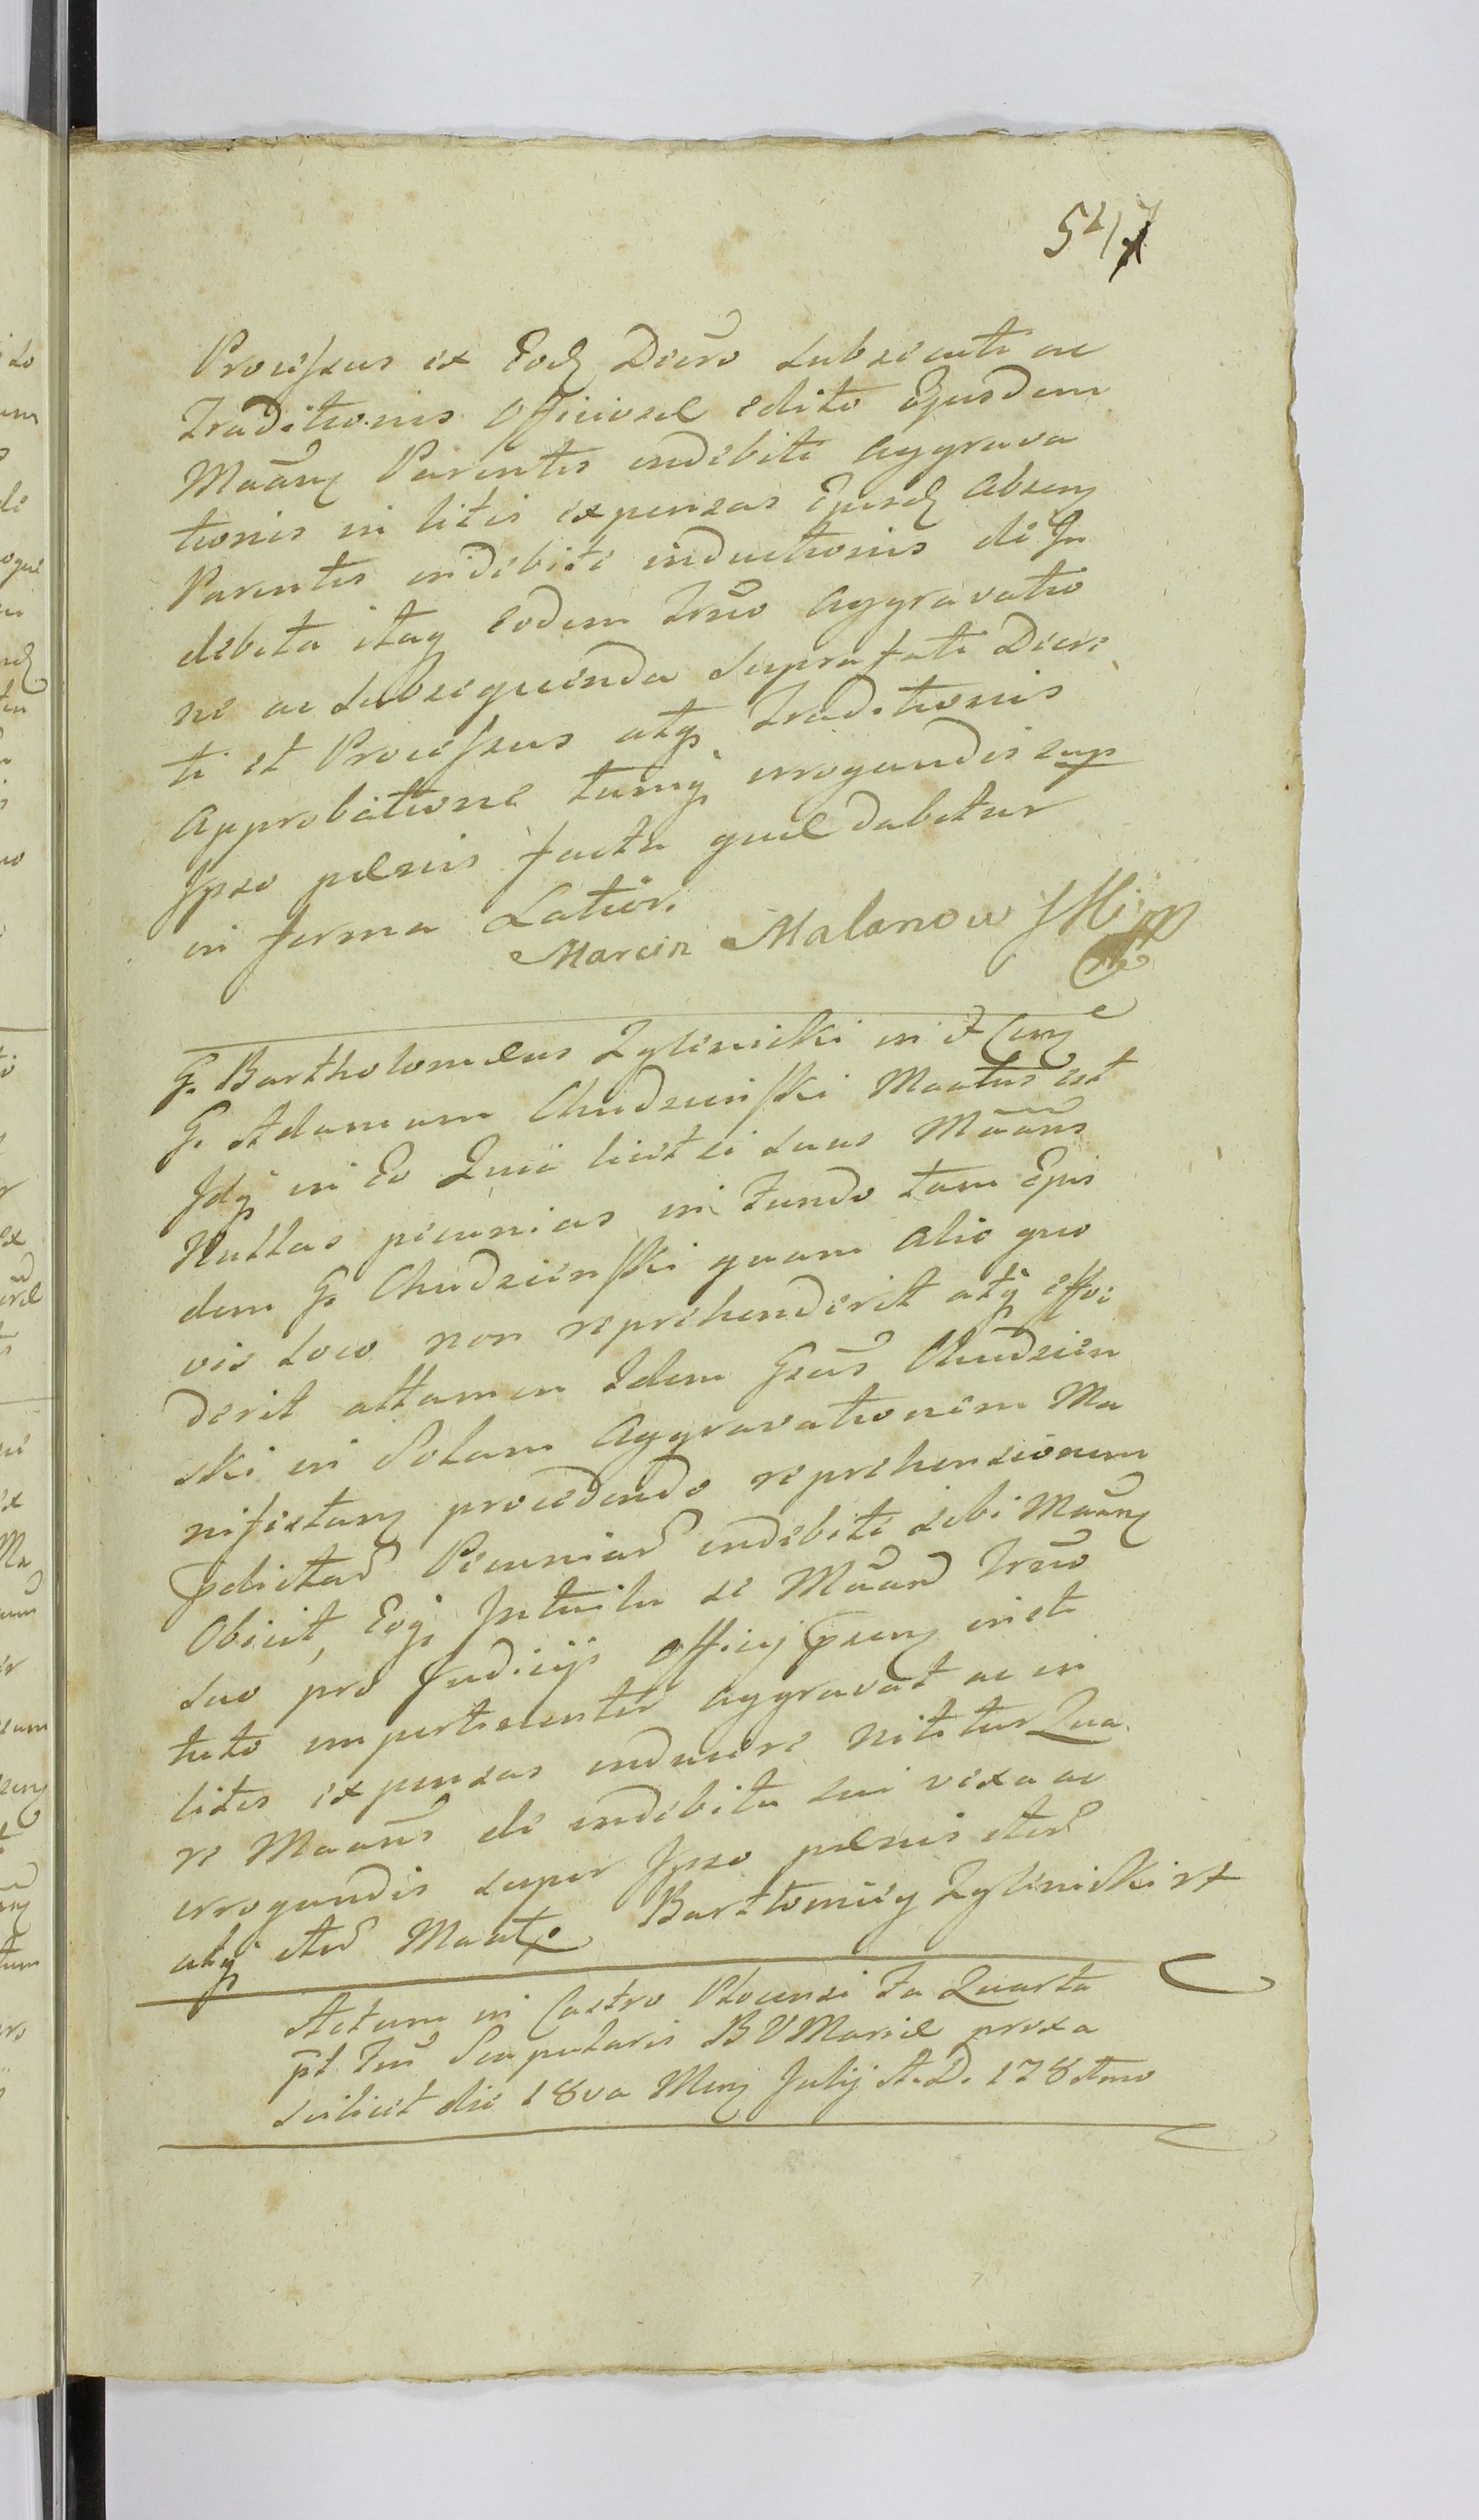 547
Processus ex Eod Decro subsecuti ac
Traditionis Officiosæ edito Ejusdem
Maãnt Parentis indebite aggrava
tionis in litis expensas Ejusd absen
Parentis indebite inductionis de In
debita itaq eodem Trno aggravatio
ne ac subsequenda suprafati Decre
ti et Processus atq Traditionis
approbatione tumq irrogandis sup
Ipso pænis facta quæ dabetur
in forma Latiori
Marcin Malanowski mp
G. Bartholomeus Zglinicki in et
G. Adamum Chudzinski Maatus est
Idq in Eo Quii licet ei suas Maãns
Nullas pecunias in Fundo tam Ejus
dem G. Chudzienski quam alio quo
vis Loco non reprehenderit atq effo
derit attamen Idem Gsus Chudzien
ski in Solam aggravationem Ma
nifestant procedendo reprehensionem
pdictar Pecuniar indebite sibi Maãnt
Obicit, Eoq Intuitu se Maãn Trno
suo pro Judicijs Officij psen insti
tuto impertinenter aggravat ac in
litis expensas inducere nititur Qua
re Maãns de indebita sui vexa ac
irrogandis super Ipso pænis iter
atq iter Maat. Bartlomiey Zglinicki
Actum in Castro Plocensi Fa Quarta
pt Fm Scapularis B V Mariæ proxa
scilicet die 18va Mens Julij A. D. 178